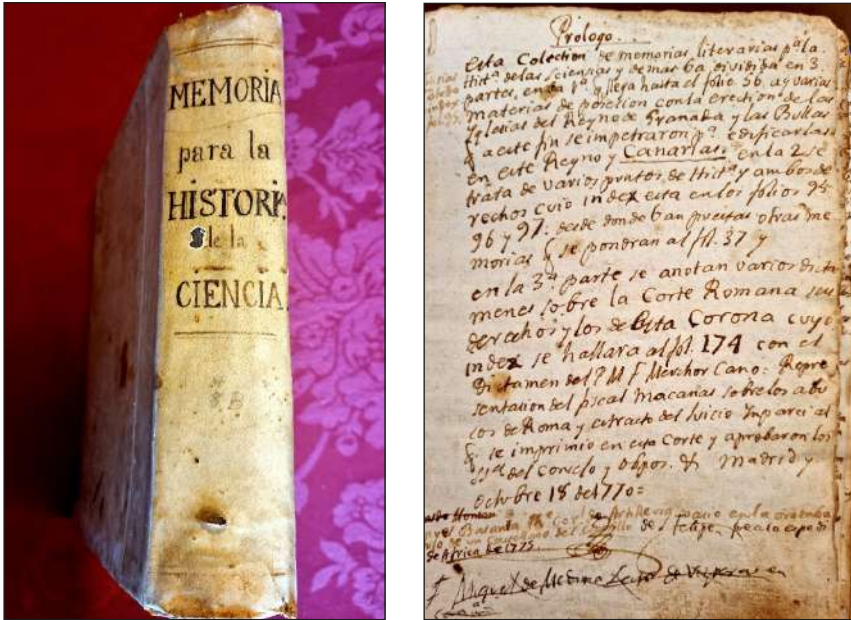 MEMORIA
para la
HISTORI
de la
CIENCIA
Prologo.
Esta Colection de memorias literarias pª la
Histª de las sciensias y demas ba dividida en 3
partes, en la 1ª q llega hasta el folio 56. ay varias
materias de posicion con la erection de las
Iglesias del Reyno de Granada y las Bullas
q a este fin se impetraron pª edificarlas
en este Reyno y Canarias. en la 2 se
trata de varios puntos de Histª y ambos de
rechos cuio index esta en los folios
96 y 97. desde donde ban puestas otras me
morias q se pondran al fol. 37 y
en la 3ª parte se anotan varios dicta
menes sobre la Corte Romana sus
derechos y los de Esta Corona cuyo
index se hallara al fol. 174 con el
Dictamen del P M F Merchor Cano: Repre
sentasion del fiscal Macanas sobre los abu
sos de Roma y extracto del Juicio Imparcial
q se imprimio en esta Corte y aprobaron los
del Consejo y Obpos. Madrid y
Octubre 18 de 1770=
en la
de un del Castillo de Sn Felipe,
de Africa de 1775.
Miguel de Medina